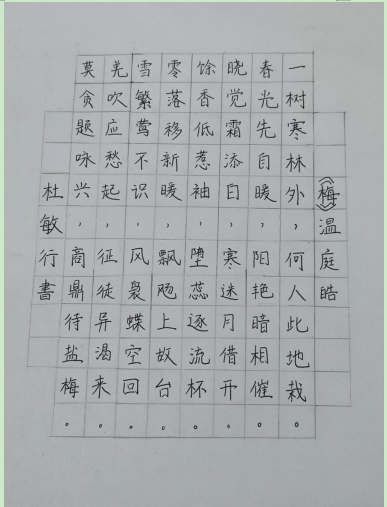 《梅》温庭皓
一树寒林外，何人此地栽。
春光先自暖，阳艳暗相催。
晓觉霜添白，寒迷月借开。
馀香低惹袖，堕蕊逐流杯。
零落移新暖，飘飏上故台。
雪繁莺不识，风袅蝶空回。
羌吹应愁起，征徒异渴来。
莫贪题咏兴，商鼎待盐梅。
杜敏行書